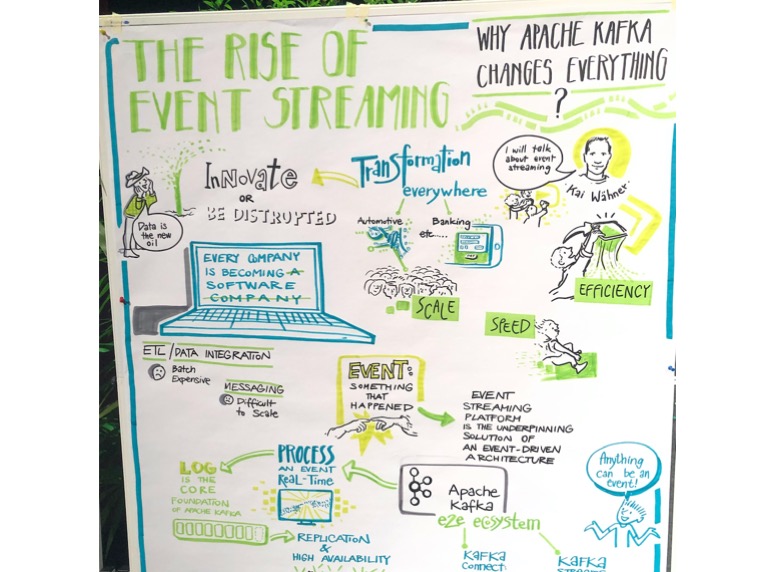 THE RISE OF
EVENT STREAMING
WHY APACHE KAFKA
CHANGES EVERYTHING
?
I will talk
about event
streaming
Kai Wähner
Data is
the new
oil
INNOVATE
OR
BE DISTRUPTED
TRANSFORMATION
everywhere
Automotive
Banking
etc.....
EVERY COMPANY
IS BECOMING A
SOFTWARE
COMPANY
SCALE
SPEED
EFFICIENCY
ETL/DATA INTEGRATION
Batch
Expensive
MESSAGING
Difficult
to Scale
EVENT:
SOMETHING
THAT
HAPPENED
EVENT
STREAMING
PLATFORM
IS THE UNDERPINNING
SOLUTION OF
AN EVENT-DRIVEN
ARCHITECTURE
LOG
IS THE
CORE
FOUNDATION
OF APACHE KAFKA
PROCESS
AN EVENT
REAL-TIME
REPLICATION
&
HIGH AVAILABILITY
Apache
Kafka
e2e ecosystem
KAFKA
Connect
KAFKA
STREAMS
Anything
can be an
event!